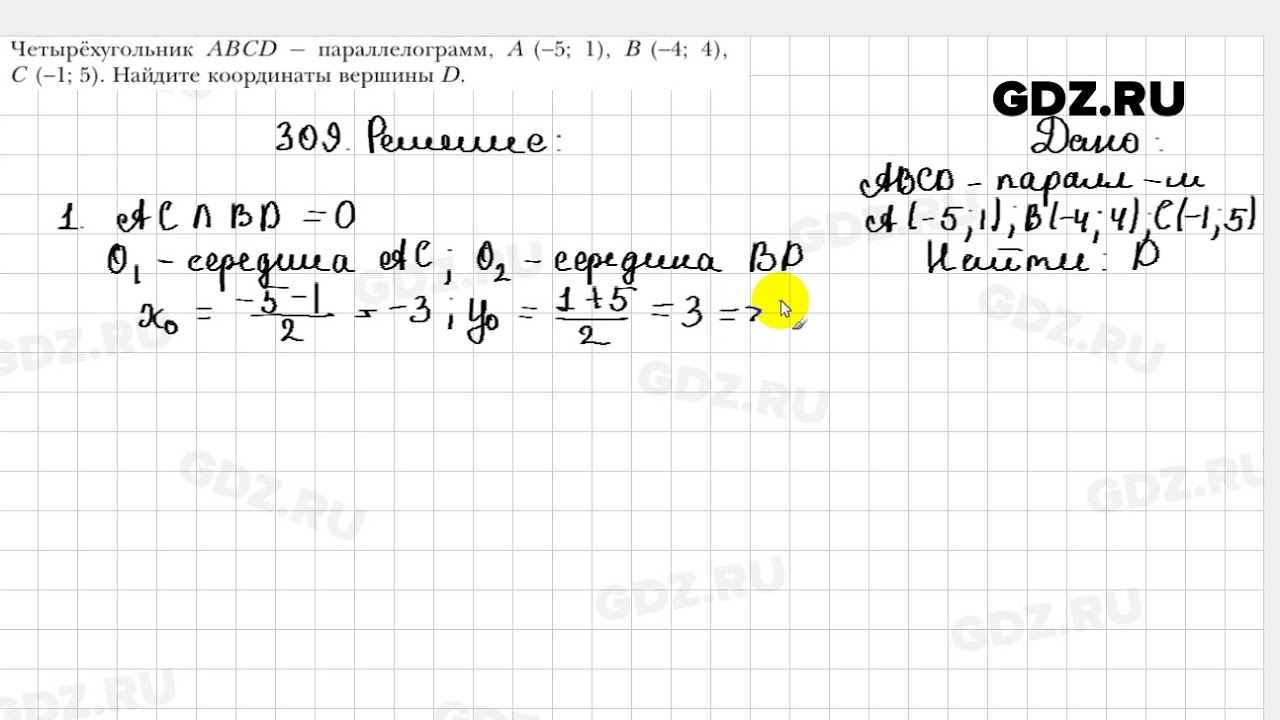 Четырёхугольник ABCD – параллелограмм, A (–5; 1), B (–4; 4),
C (–1; 5). Найдите координаты вершины D.
GDZ.RU
309. Решение:
Дано:
ABCD – паралл–м
A(-5;1); B(-4;4); C(-1;5)
Найти: D
1. AC ∩ BD = O
O₁ – середина AC; O₂ – середина BD
x₀ = (-5-1)/2 = -3; y₀ = (1+5)/2 = 3 =>
GDZ.RU
GDZ.RU
GDZ.RU
GDZ.RU
GDZ.RU
GDZ.RU
GDZ.RU
GDZ.RU
GDZ.RU
GDZ.RU